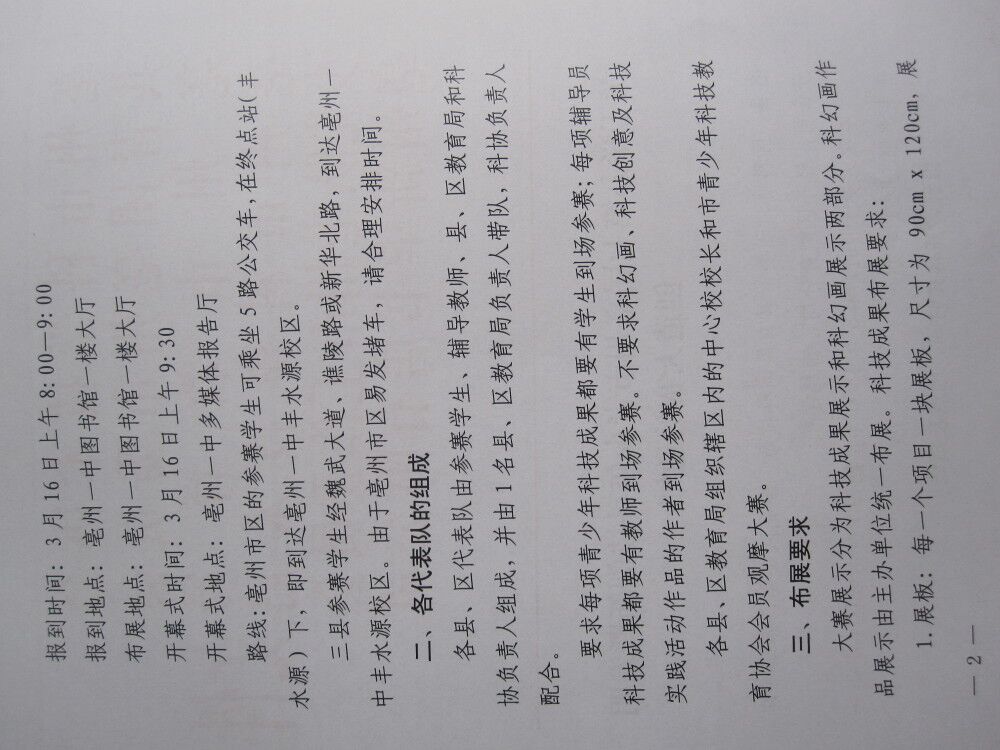 报到时间：3月16日上午8:00—9:00
报到地点：亳州一中图书馆一楼大厅
布展地点：亳州一中图书馆一楼大厅
开幕式时间：3月16日上午9:30
开幕式地点：亳州一中多媒体报告厅
路线：亳州市区的参赛学生可乘坐5路公交车，在终点站（丰
水源）下，即到达亳州一中丰水源校区。
三县参赛学生经魏武大道、谯陵路或新华北路，到达亳州一
中丰水源校区。由于亳州市区易发堵车，请合理安排时间。
二、各代表队的组成
各县、区代表队由参赛学生、辅导教师、县、区教育局和科
协负责人组成，并由1名县、区教育局负责人带队，科协负责人
配合。
要求每项青少年科技成果都要有学生到场参赛；每项辅导员
科技成果都要有教师到场参赛。不要求科幻画、科技创意及科技
实践活动作品的作者到场参赛。
各县、区教育局组织辖区内的中心校校长和市青少年科技教
育协会会员观摩大赛。
三、布展要求
大赛展示分为科技成果展示和科幻画展示两部分。科幻画作
品展示由主办单位统一布展。科技成果布展要求：
1.展板：每一个项目一块展板，尺寸为 90cm x 120cm，展
— 2 —